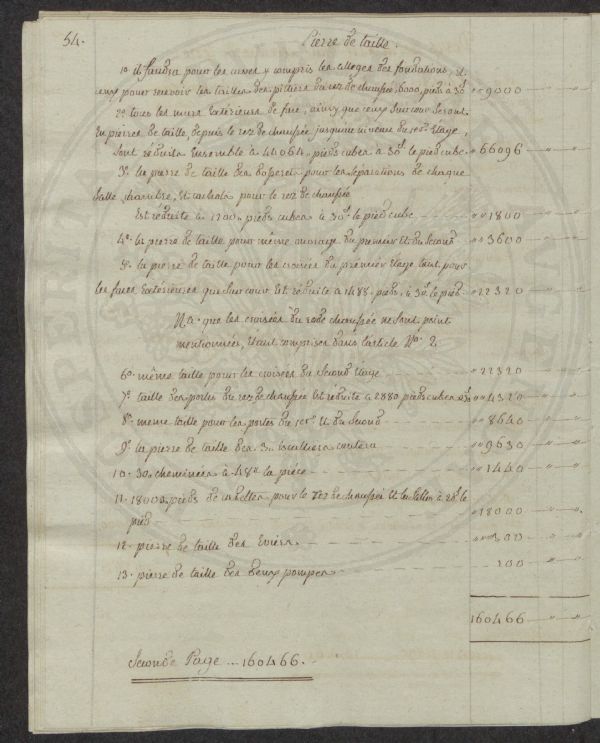 54.
Pierre de taille.
1º il faudra pour les caves y compris les alleges des fondations, et
ceux pour recevoir les tailles des piliers du rez de chaussée, 6000, pieds a 30ˢ " 9000 — " — "
2º tous les murs Extérieurs de face, ainsy que ceux sur cour seront
En pierres de taille, depuis le rez de chaussée jusqu'au niveau du 1er Etage,
sont réduits Ensemble à 44064, pieds cubes à 30ˢ le pied cube " 66096 — " — "
3º la pierre de taille des dosserets pour les séparations de chaque
salle, chambre, et cachots pour le rez de chaussée
Est réduite à 1200 pieds cubes à 30ˢ le pied cube " " 1800 — " — "
4º la pierre de taille pour même ouvrage du premier et du second " " 3600 — " — "
5º la pierre de taille pour les croisées du premier Etage tant pour
les faces Extérieures que sur cour est réduite à 1488 pieds, à 30ˢ le pied " 22320 — " — "
Nª que les croisées du rez de chaussée ne sont point
mentionnées, étant comprises dans l'article Nº 2,
6º même taille pour les croisées du second Etage " 22320 — " — "
7º taille des portes du rez de chaussée est réduite a 2880 pieds cubes " " 4320 — " — "
8º même taille pour les portes du 1er et du second " " 8640 — " — "
9º la pierre de taille des 3 Escalliers coutera " " 9630 — " — "
10. 30. cheminées à 48 la pièce " " 1440 — " — "
11. 18000. pieds de dalles pour le rez de chaussée et à 20ˢ le
pied " 18000 — " — "
12. pierre de taille des Eviers " " " 300 — " — "
13. pierre de taille des deux pompes 200 — " — "
160466 — " — "
Seconde Page ... 160466.